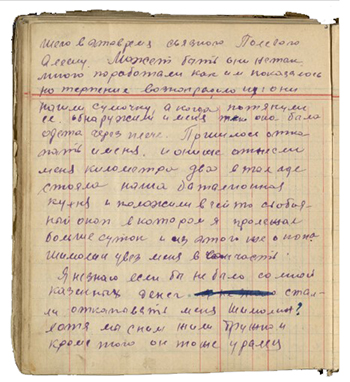 шего в то время связного Полевого
Алешу. Может быть они не так
много поработали как им показалось
но терпение восторжествовало и они
нашли сумочку, а когда потянули
ее, обнаружили и меня так как она была
одета через плечо. Пришлось отка
пать и меня, и они же отнесли
меня километра два в тыл где
стояла наша батальонная
кухня и положили в чей то свобод
ной окоп в котором я пролежал
больше суток и из этого же окопа
Шимолин увез меня в санчасть.
Я не знаю если бы не было со мной
казенных денег стали
ли откапывать меня Шимолин?
хотя мы с ним жили дружно и
кроме того он тоже уралец